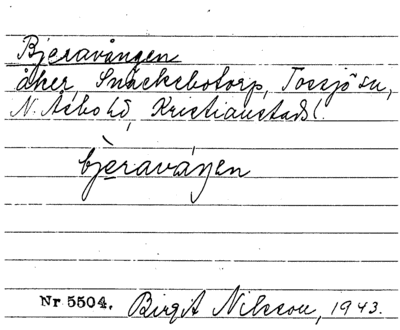 Bjeravången
åker, Snäckebotorp, Tossjö sn,
N. Åsbo hd, Kristianstads l.
bjèraváŋen
Nr 5504. Birgit Nilsson, 1943.